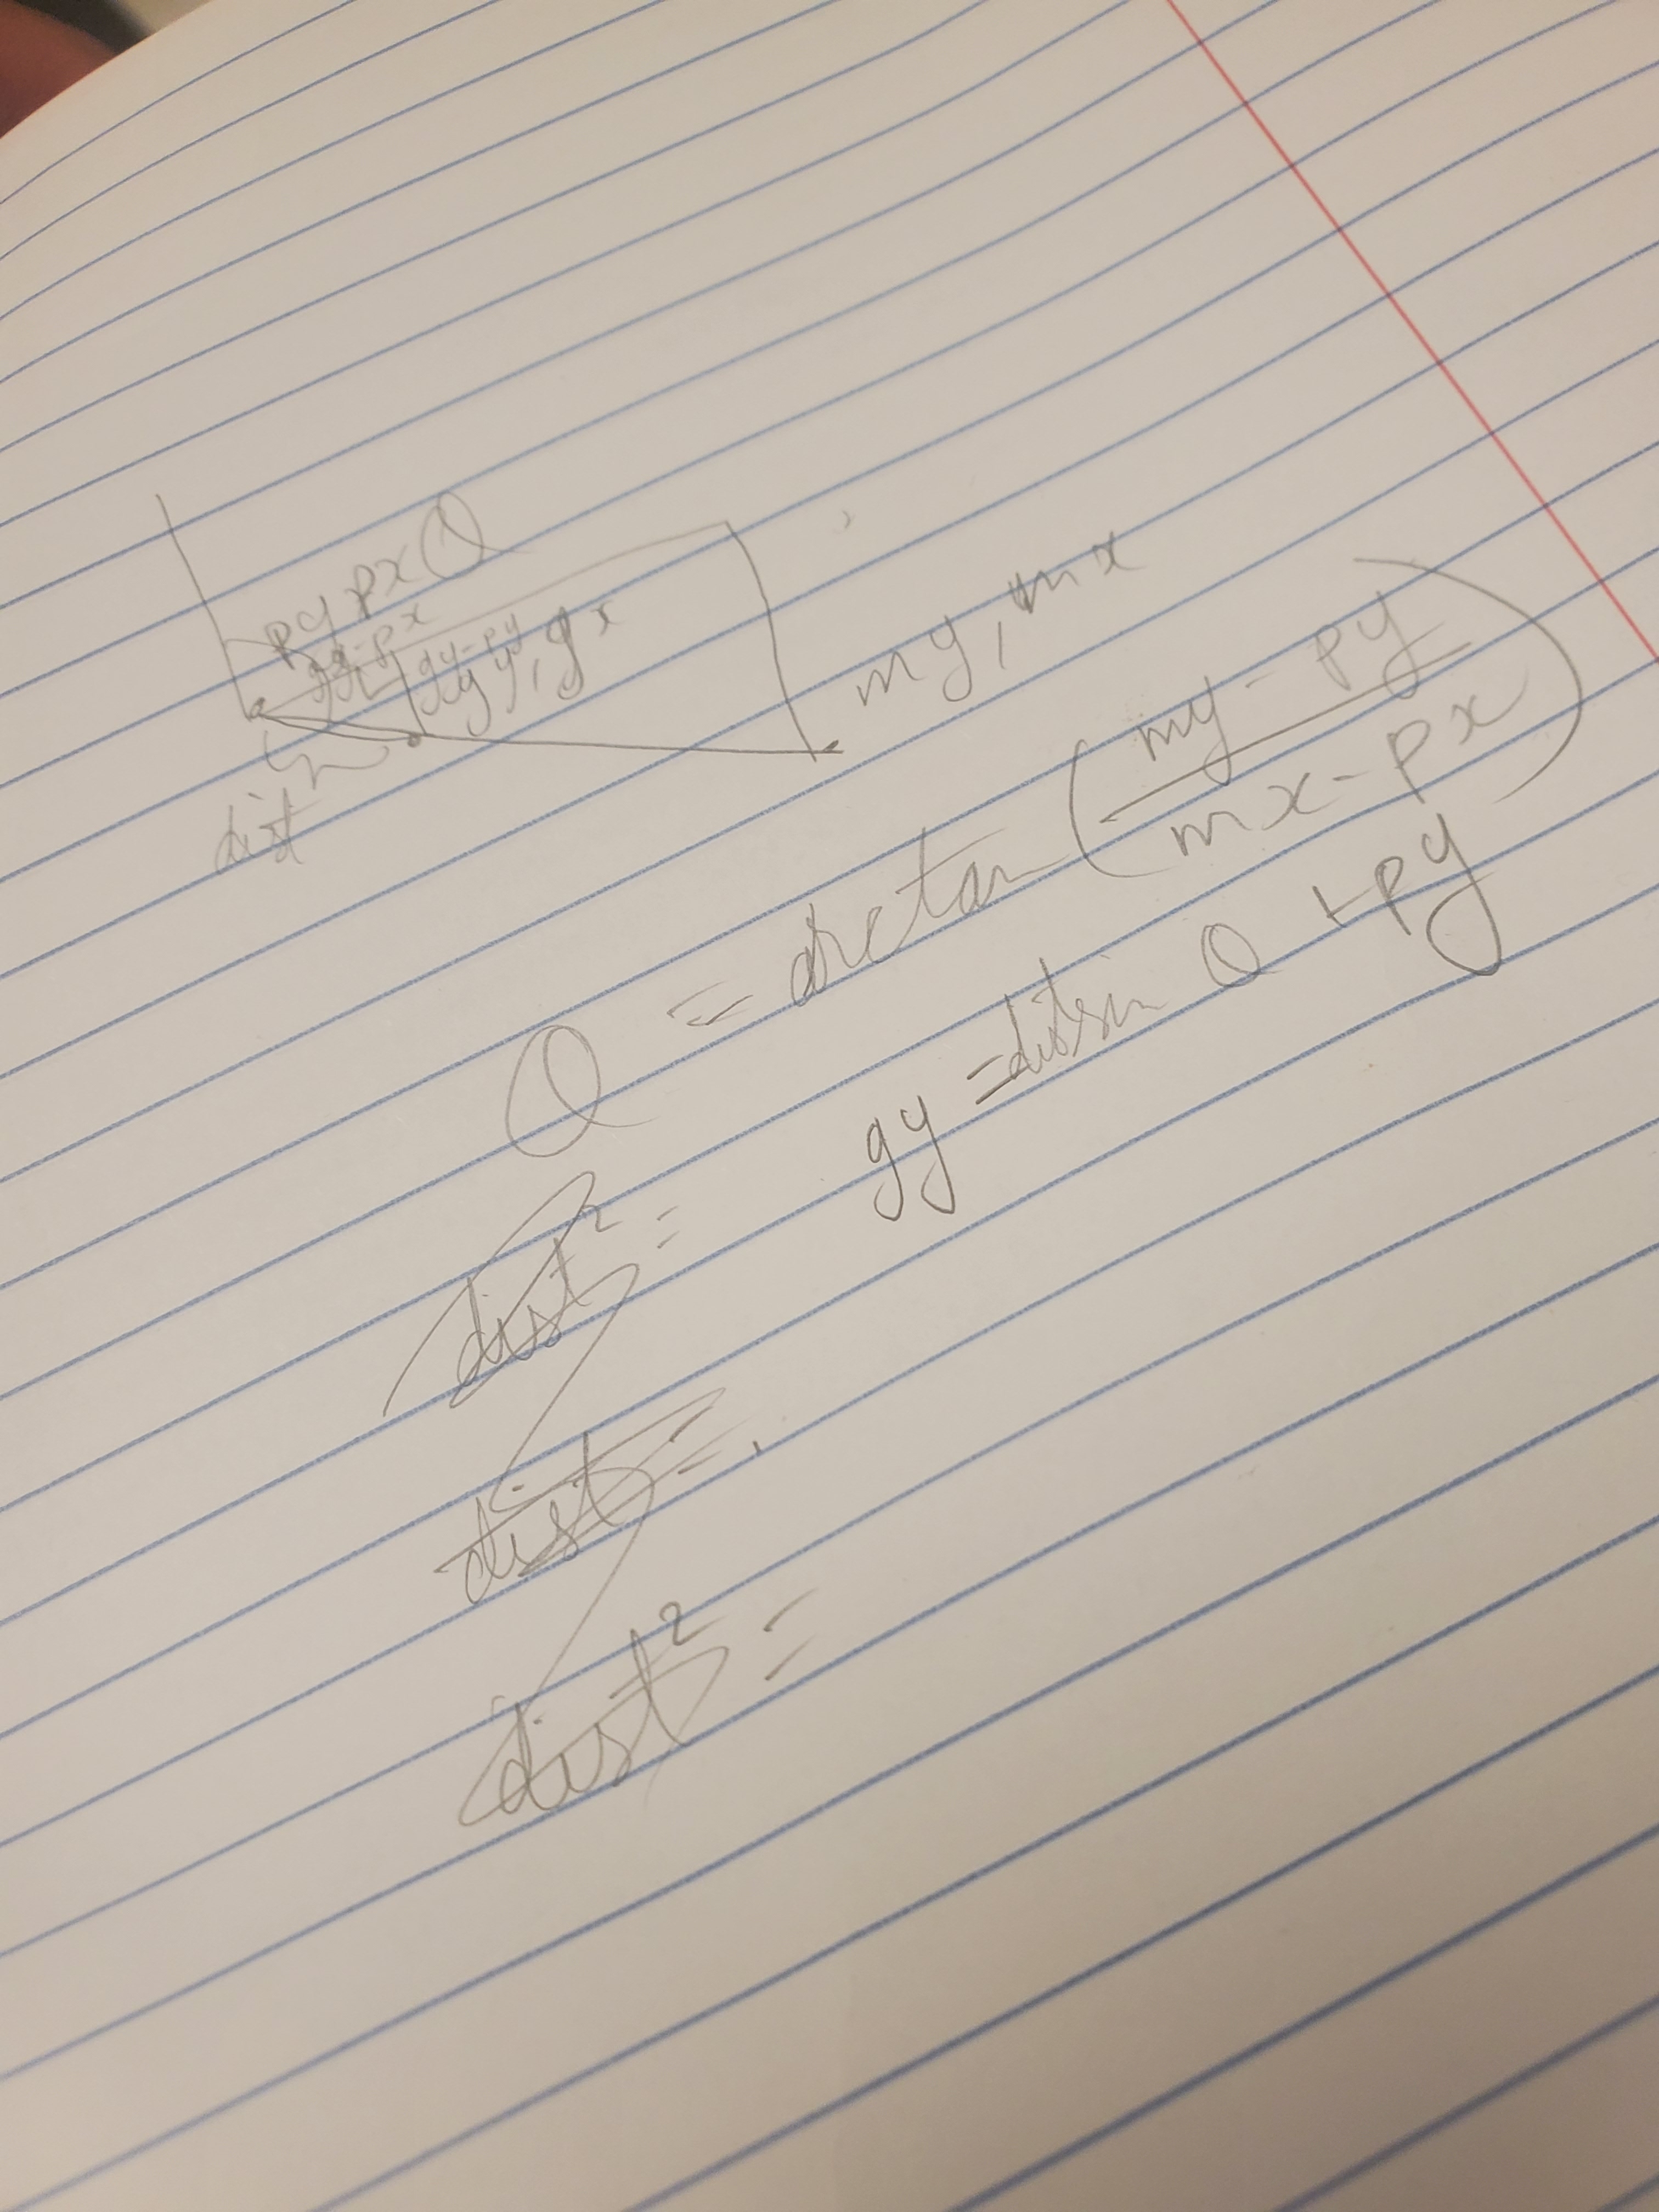 py px θ
gx-px
gy-py
gy, gx
my, mx
dist
θ = arctan (my - py / mx - px)
gy = dist sin θ + py
dist² =
dist =
dist² =